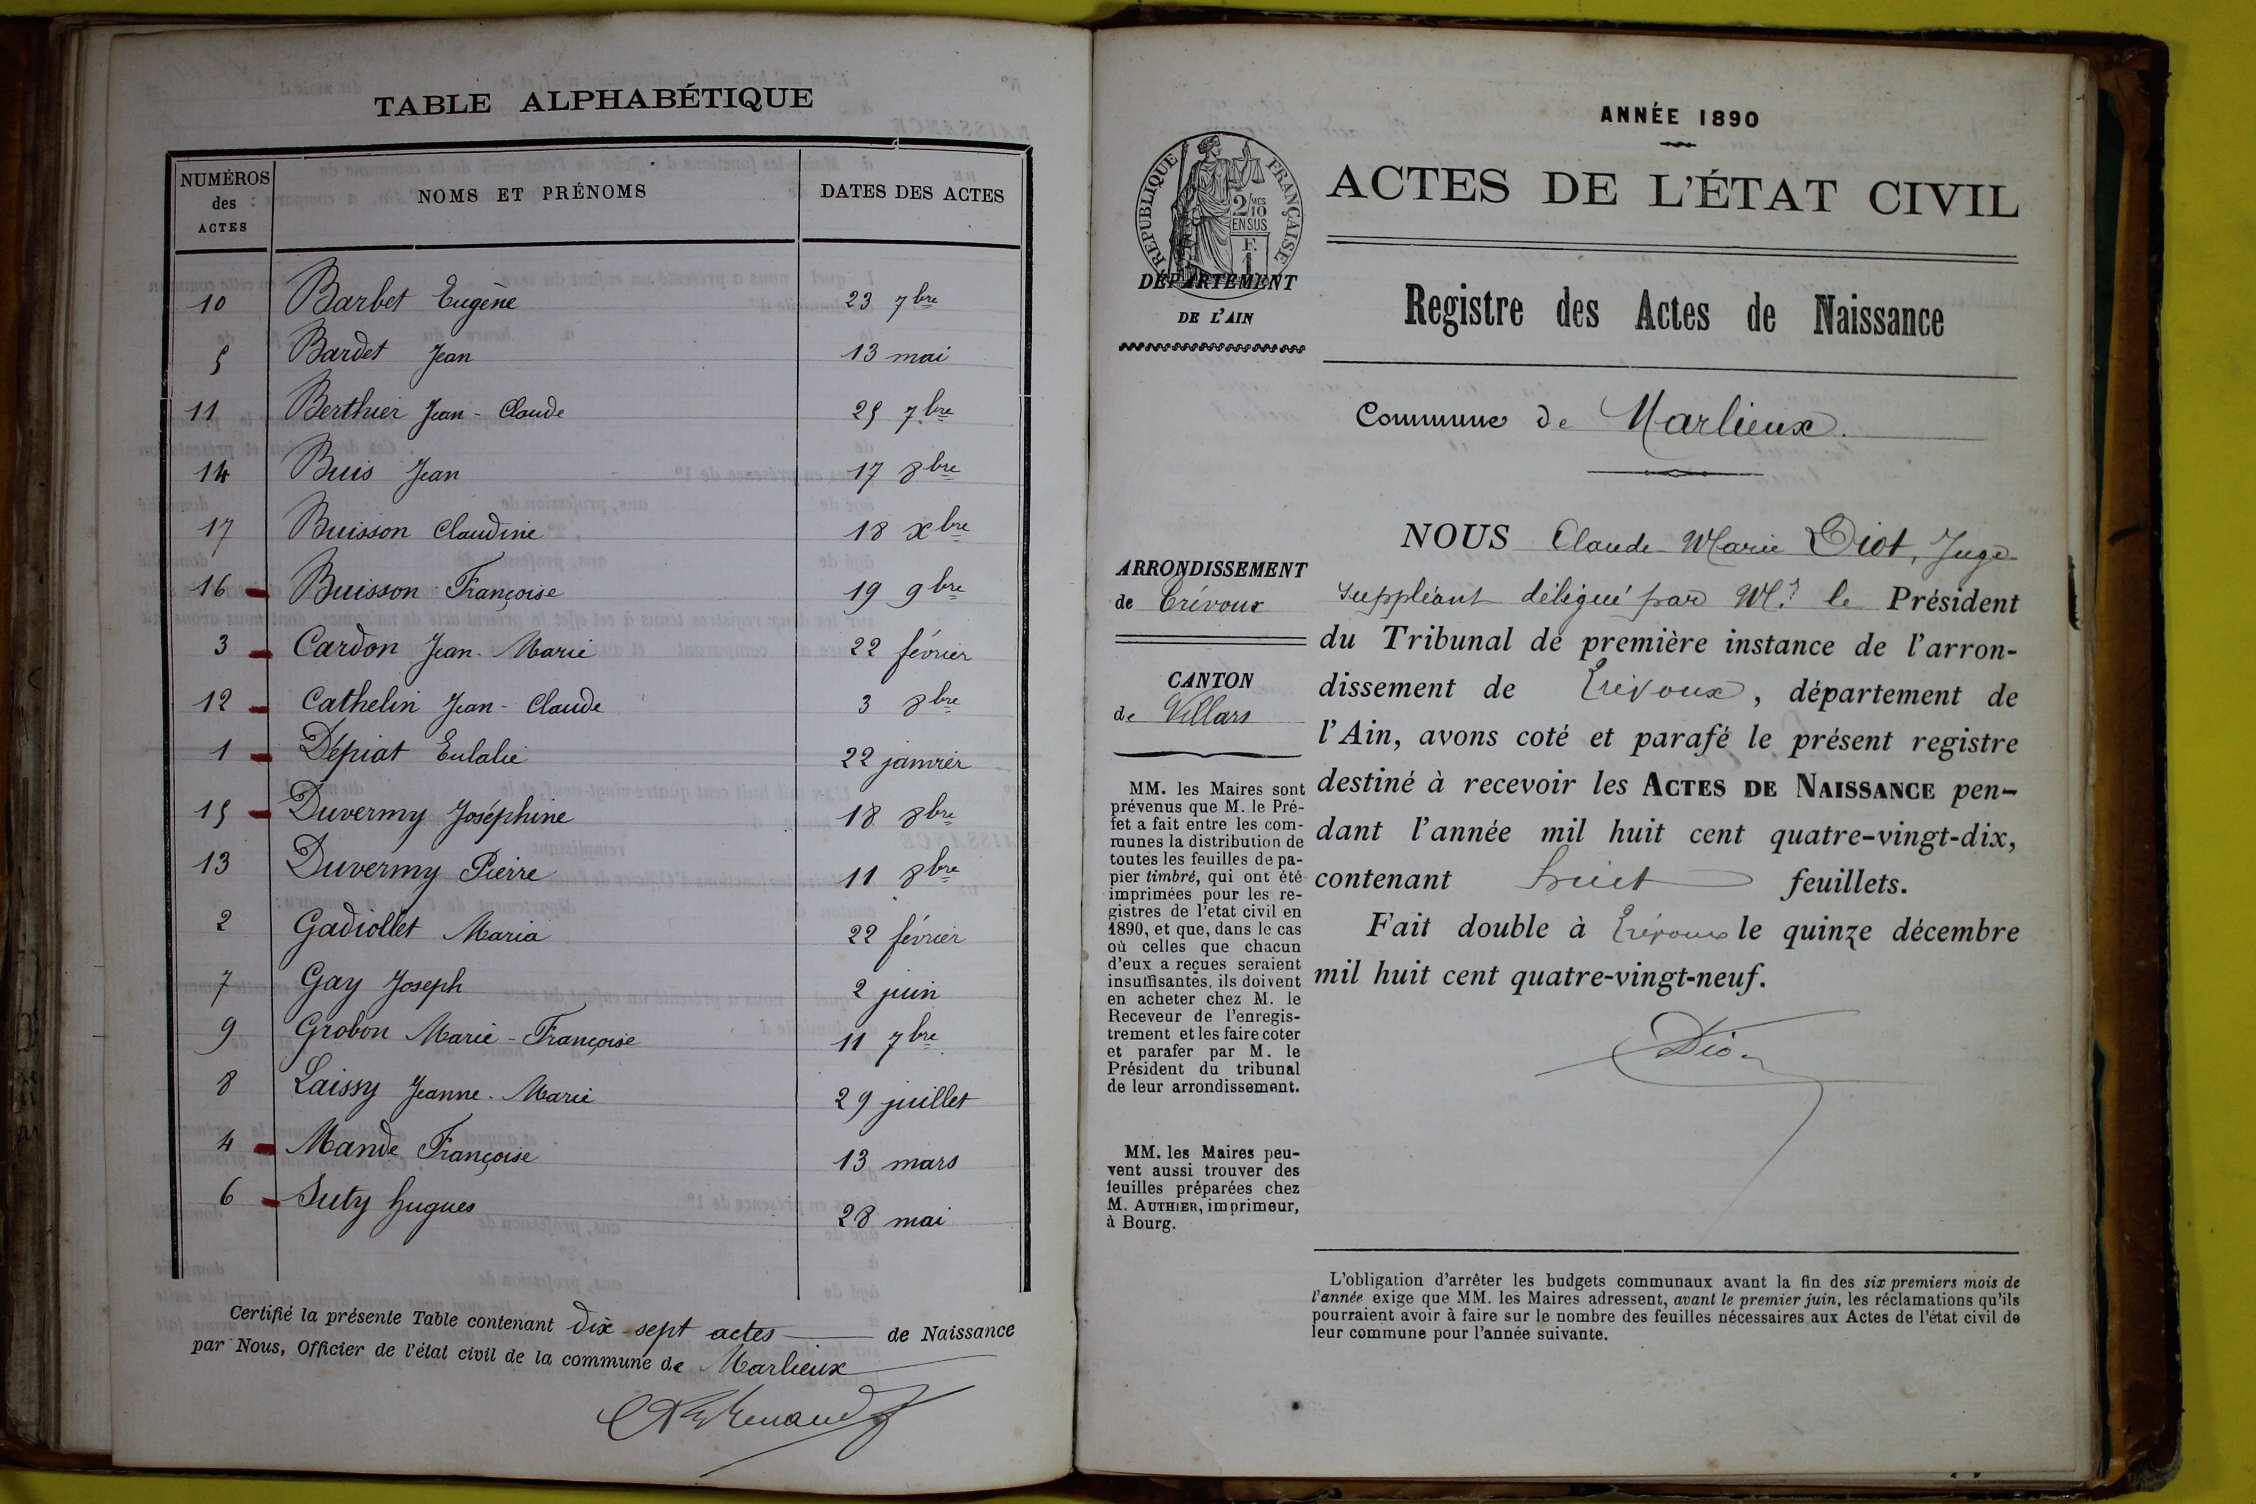 TABLE ALPHABÉTIQUE
NUMÉROS des ACTES NOMS ET PRÉNOMS DATES DES ACTES
10 Barbet Eugène 23 7bre
5 Bardet Jean 13 mai
11 Berthier Jean-Claude 25 7bre
14 Buis Jean 17 8bre
17 Buisson Claudine 18 xbre
16 Buisson Françoise 19 9bre
3 Cardon Jean-Marie 22 février
12 Cathelin Jean-Claude 3 8bre
1 Dépiat Eulalie 22 janvier
15 Duvermy Joséphine 18 8bre
13 Duvermy Pierre 11 8bre
2 Gadiollet Maria 22 février
7 Gay Joseph 2 juin
9 Grobon Marie-Françoise 11 7bre
8 Laissy Jeanne-Marie 29 juillet
4 Mande Françoise 13 mars
6 Suty Hugues 28 mai
Certifié la présente Table contenant dix-sept actes de Naissance
par Nous, Officier de l'état civil de la commune de Marlieux
ANNÉE 1890
RÉPUBLIQUE FRANÇAISE
2/10MES
EN SUS
F.
1
ACTES DE L'ÉTAT CIVIL
DÉPARTEMENT
DE L'AIN
Registre des Actes de Naissance
Commune de Marlieux.
ARRONDISSEMENT
de Trévoux
CANTON
de Villars
MM. les Maires sont
prévenus que M. le Pré-
fet a fait entre les com-
munes la distribution de
toutes les feuilles de pa-
pier timbré, qui ont été
imprimées pour les re-
gistres de l'etat civil en
1890, et que, dans le cas
où celles que chacun
d'eux a reçues seraient
insuffisantes, ils doivent
en acheter chez M. le
Receveur de l'enregis-
trement et les faire coter
et parafer par M. le
Président du tribunal
de leur arrondissement.
MM. les Maires peu-
vent aussi trouver des
feuilles préparées chez
M. AUTHIER, imprimeur,
à Bourg.
NOUS Claude-Marie Diot, Juge
suppléant délégué par Mr le Président
du Tribunal de première instance de l'arron-
dissement de Trévoux, département de
l'Ain, avons coté et parafé le présent registre
destiné à recevoir les ACTES DE NAISSANCE pen-
dant l'année mil huit cent quatre-vingt-dix,
contenant huit feuillets.
Fait double à Trévoux le quinze décembre
mil huit cent quatre-vingt-neuf.
Diot
L'obligation d'arrêter les budgets communaux avant la fin des six premiers mois de
l'année exige que MM. les Maires adressent, avant le premier juin, les réclamations qu'ils
pourraient avoir à faire sur le nombre des feuilles nécessaires aux Actes de l'état civil de
leur commune pour l'année suivante.